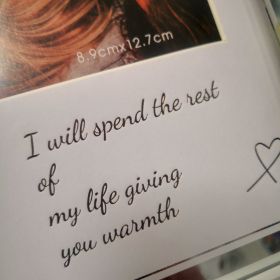 8.9cmx12.7cm
I will spend the rest
of
my life giving
you warmth